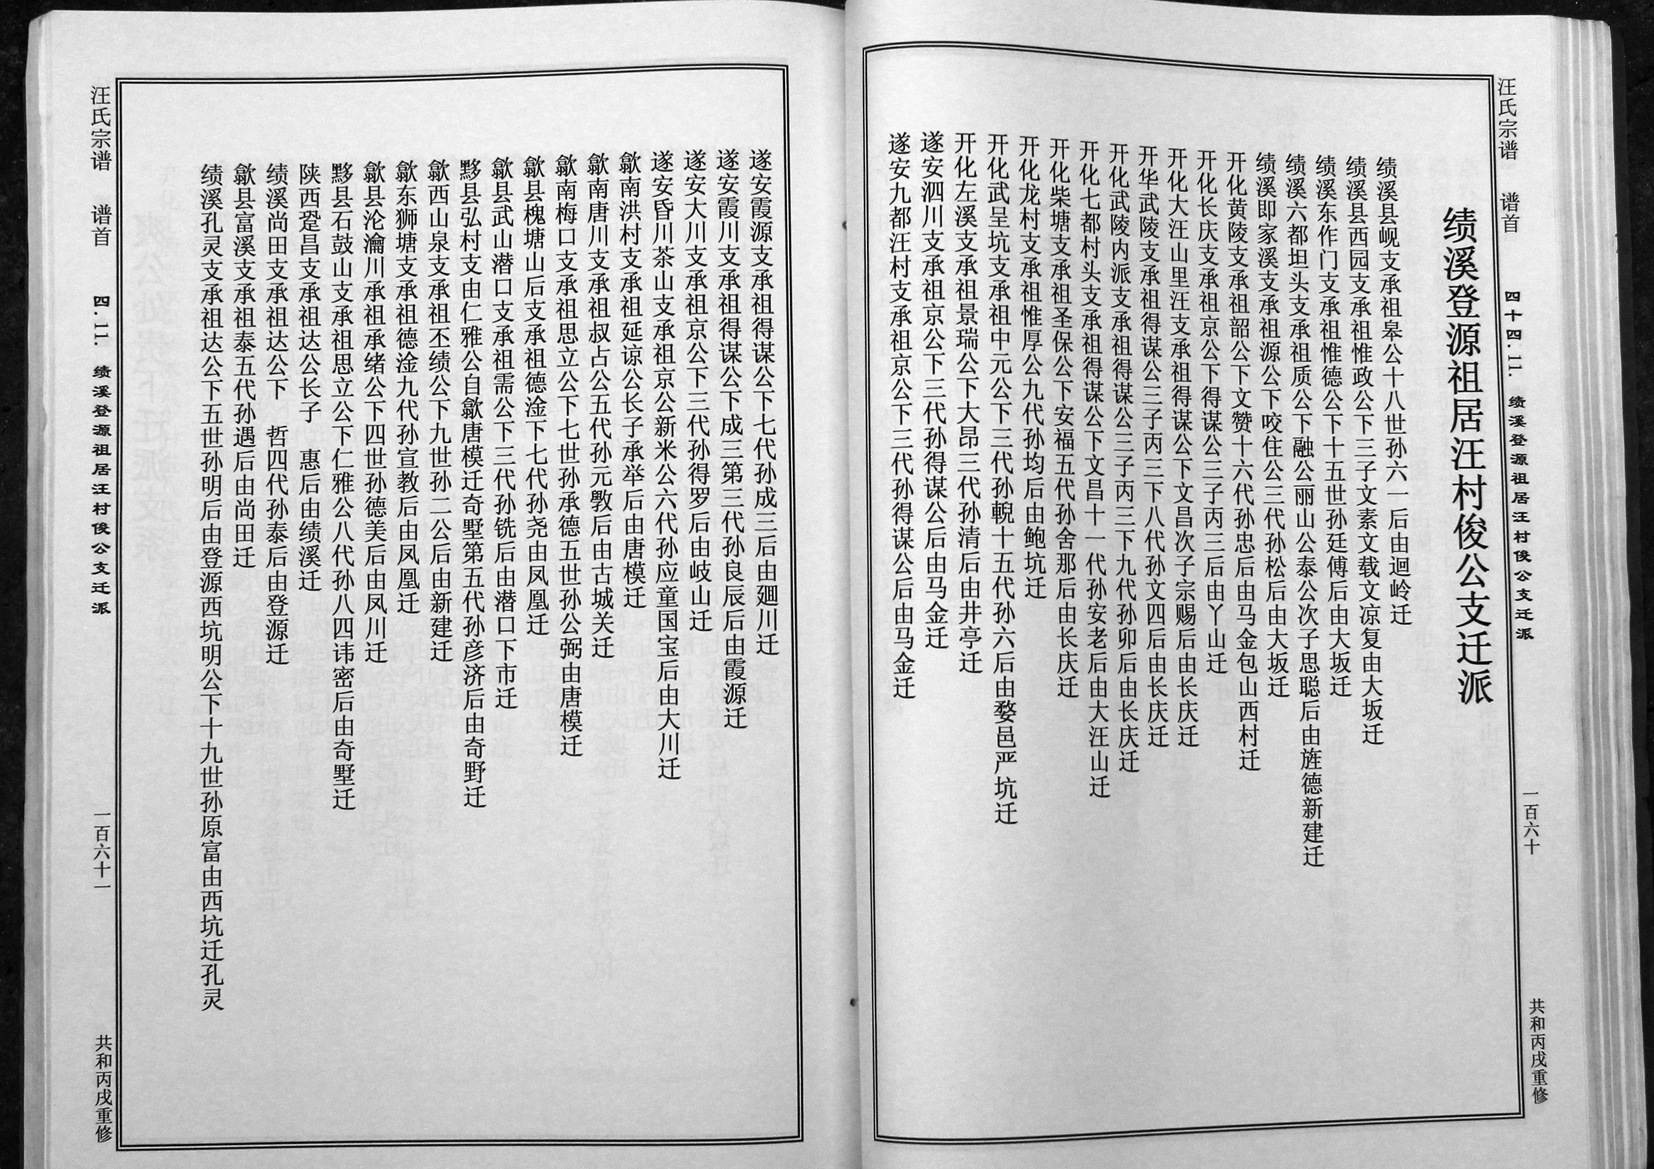 汪氏宗谱 谱首 四十四.11. 绩溪登源祖居汪村俊公支迁派 一百六十 共和丙戌重修
绩溪登源祖居汪村俊公支迁派
绩溪县岘支承祖皋公十八世孙六一后由迴岭迁
绩溪县西园支承祖惟政公下三子文素文载文凉复由大坂迁
绩溪东作门支承祖惟德公下十五世孙廷傅后由大坂迁
绩溪六都坦头支承祖质公下融公丽山公泰公次子思聪后由旌德新建迁
绩溪即家溪支承祖源公下咬住公三代孙松后由大坂迁
开化黄陵支承祖韶公下文赞十六代孙忠后由马金包山西村迁
开化长庆支承祖京公下得谋公三子丙三后由丫山迁
开化大汪山里汪支承祖得谋公下文昌次子宗赐后由长庆迁
开华武陵支承祖得谋公三子丙三下八代孙文四后由长庆迁
开化武陵内派支承祖得谋公三子丙三下九代孙卯后由长庆迁
开化七都村头支承祖得谋公下文昌十一代孙安老后由大汪山迁
开化柴塘支承祖圣保公下安福五代孙舍那后由长庆迁
开化龙村支承祖惟厚公九代孙均后由鲍坑迁
开化武呈坑支承祖中元公下三代孙輗十五代孙六后由婺邑严坑迁
开化左溪支承祖景瑞公下大昂三代孙清后由井亭迁
遂安泗川支承祖京公下三代孙得谋公后由马金迁
遂安九都汪村支承祖京公下三代孙得谋公后由马金迁
遂安霞源支承祖得谋公下七代孙成三后由廻川迁
遂安霞川支承祖得谋公下成三第三代孙良辰后由霞源迁
遂安大川支承祖京公下三代孙得罗后由岐山迁
遂安昏川茶山支承祖京公新米公六代孙应童国宝后由大川迁
歙南洪村支承祖延谅公长子承举后由唐模迁
歙南唐川支承祖叔占公五代孙元斆后由古城关迁
歙南梅口支承祖思立公下七世孙承德五世孙公弼由唐模迁
歙县槐塘山后支承祖德淦下七代孙尧由凤凰迁
歙县武山潜口支承祖需公下三代孙铣后由潜口下市迁
黟县弘村支由仁雅公自歙唐模迁奇墅第五代孙彦济后由奇野迁
歙西山泉支承祖丕绩公下九世孙二公后由新建迁
歙东狮塘支承祖德淦九代孙宣教后由凤凰迁
歙县沦瀹川承祖承绪公下四世孙德美后由凤川迁
黟县石鼓山支承祖思立公下仁雅公八代孙八四讳密后由奇墅迁
陕西跫昌支承祖达公长子 惠后由绩溪迁
绩溪尚田支承祖达公下 哲四代孙泰后由登源迁
歙县富溪支承祖泰五代孙遇后由尚田迁
绩溪孔灵支承祖达公下五世孙明后由登源西坑明公下十九世孙原富由西坑迁孔灵
汪氏宗谱 谱首 四.11. 绩溪登源祖居汪村俊公支迁派 一百六十一 共和丙戌重修